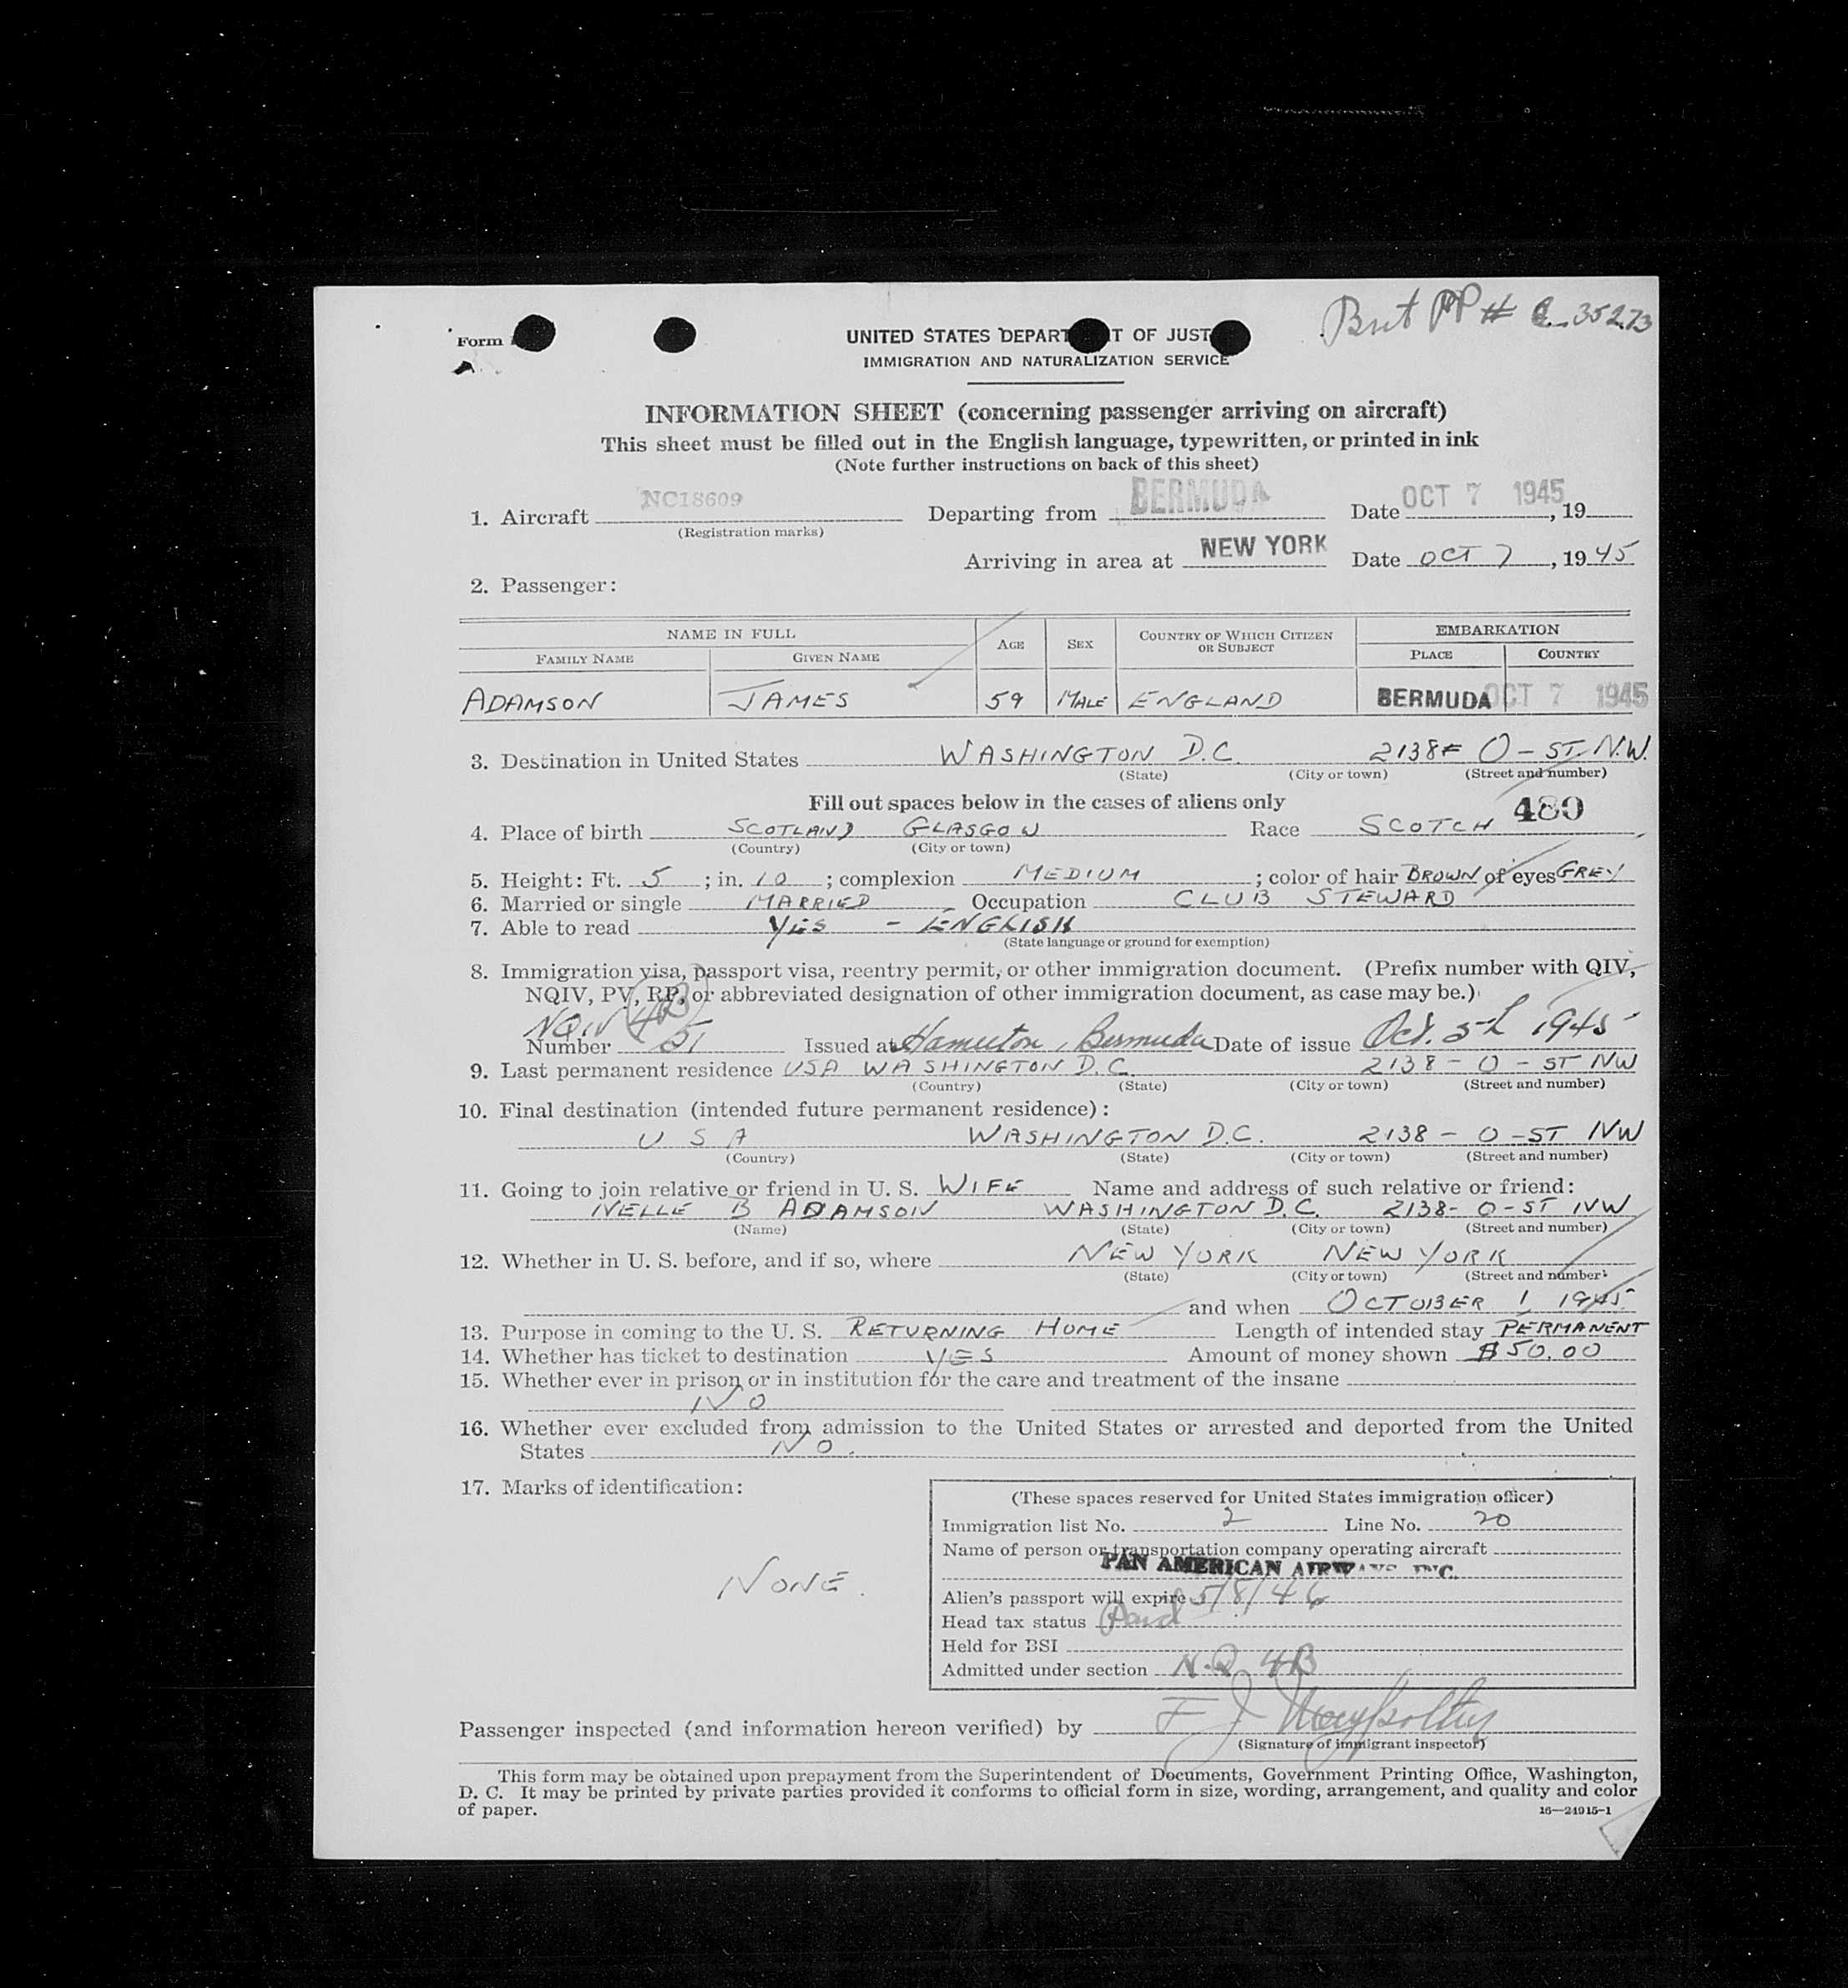 Brit PP # C-35273
Form
UNITED STATES DEPART T OF JUST
IMMIGRATION AND NATURALIZATION SERVICE
INFORMATION SHEET (concerning passenger arriving on aircraft)
This sheet must be filled out in the English language, typewritten, or printed in ink
(Note further instructions on back of this sheet)
1. Aircraft NC18609 Departing from BERMUDA Date OCT 7 1945, 19
(Registration marks)
Arriving in area at NEW YORK Date OCT 7, 1945
2. Passenger:
NAME IN FULL AGE SEX COUNTRY OF WHICH CITIZEN OR SUBJECT EMBARKATION
FAMILY NAME GIVEN NAME PLACE COUNTRY
ADAMSON JAMES 59 MALE ENGLAND BERMUDA OCT 7 1945
3. Destination in United States WASHINGTON D.C. 2138 O-ST. N.W.
(State) (City or town) (Street and number)
Fill out spaces below in the cases of aliens only 489
4. Place of birth SCOTLAND GLASGOW Race SCOTCH
(Country) (City or town)
5. Height: Ft. 5; in. 10; complexion MEDIUM; color of hair BROWN of eyes GREY
6. Married or single MARRIED Occupation CLUB STEWARD
7. Able to read YES - ENGLISH
(State language or ground for exemption)
8. Immigration visa, passport visa, reentry permit, or other immigration document. (Prefix number with QIV,
NQIV, PV, RP, or abbreviated designation of other immigration document, as case may be.)
NQIV 4B
Number 51 Issued at Hamilton, Bermuda Date of issue Oct. 5th 1945
9. Last permanent residence USA WASHINGTON D.C. 2138-O-ST NW
(Country) (State) (City or town) (Street and number)
10. Final destination (intended future permanent residence):
USA WASHINGTON D.C. 2138-O-ST NW
(Country) (State) (City or town) (Street and number)
11. Going to join relative or friend in U. S. WIFE Name and address of such relative or friend:
NELLE B ADAMSON WASHINGTON D.C. 2138-O-ST NW
(Name) (State) (City or town) (Street and number)
12. Whether in U. S. before, and if so, where NEW YORK NEW YORK
(State) (City or town) (Street and number)
and when OCTOBER 1, 1945
13. Purpose in coming to the U. S. RETURNING HOME Length of intended stay PERMANENT
14. Whether has ticket to destination YES Amount of money shown $50.00
15. Whether ever in prison or in institution for the care and treatment of the insane
NO
16. Whether ever excluded from admission to the United States or arrested and deported from the United
States NO.
17. Marks of identification:
NONE.
(These spaces reserved for United States immigration officer)
Immigration list No. 2 Line No. 20
Name of person or transportation company operating aircraft
PAN AMERICAN AIRWAYS, INC.
Alien's passport will expire 5/8/46
Head tax status Paid
Held for BSI
Admitted under section N.Q 4B
Passenger inspected (and information hereon verified) by F J
(Signature of immigrant inspector)
This form may be obtained upon prepayment from the Superintendent of Documents, Government Printing Office, Washington,
D. C. It may be printed by private parties provided it conforms to official form in size, wording, arrangement, and quality and color
of paper.
16—24915-1